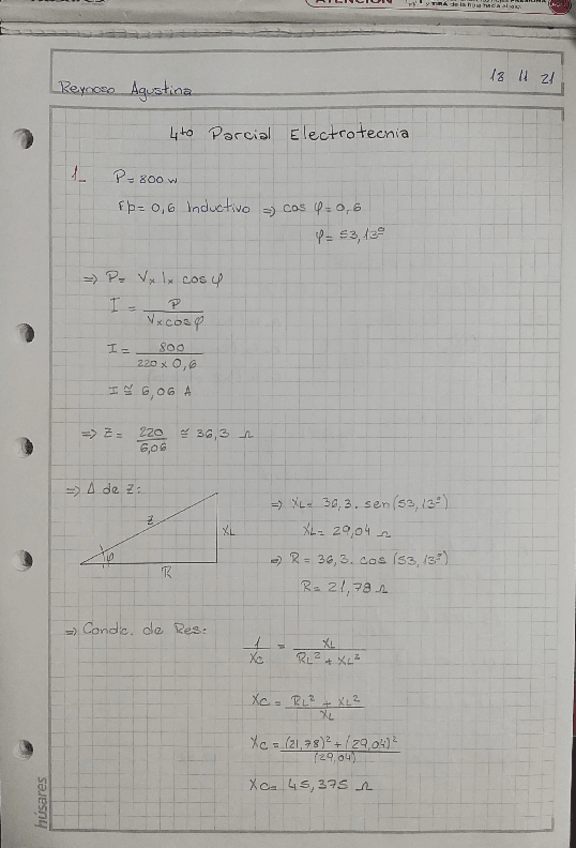 ATENCIÓN
18 11 21
Reynoso Agustina
4to Parcial Electrotecnia
1_ P= 800 w
Fp= 0,6 Inductivo => cos φ= 0,6
φ= 53,13º
=> P= V x I x cos φ
I = P / V x cos φ
I = 800 / 220 x 0,6
I ≅ 6,06 A
=> Z = 220 / 6,06 ≅ 36,3 Ω
=> Δ de Z:
Z
φ
XL
R
=> XL= 36,3. sen(53,13º)
XL= 29,04 Ω
=> R = 36,3. cos (53,13º)
R = 21,78 Ω
=> Condic. de Res:
1 / XC = XL / RL² + XL²
XC = RL² + XL² / XL
XC = (21,78)² + (29,04)² / (29,04)
XC= 45,375 Ω
húsares